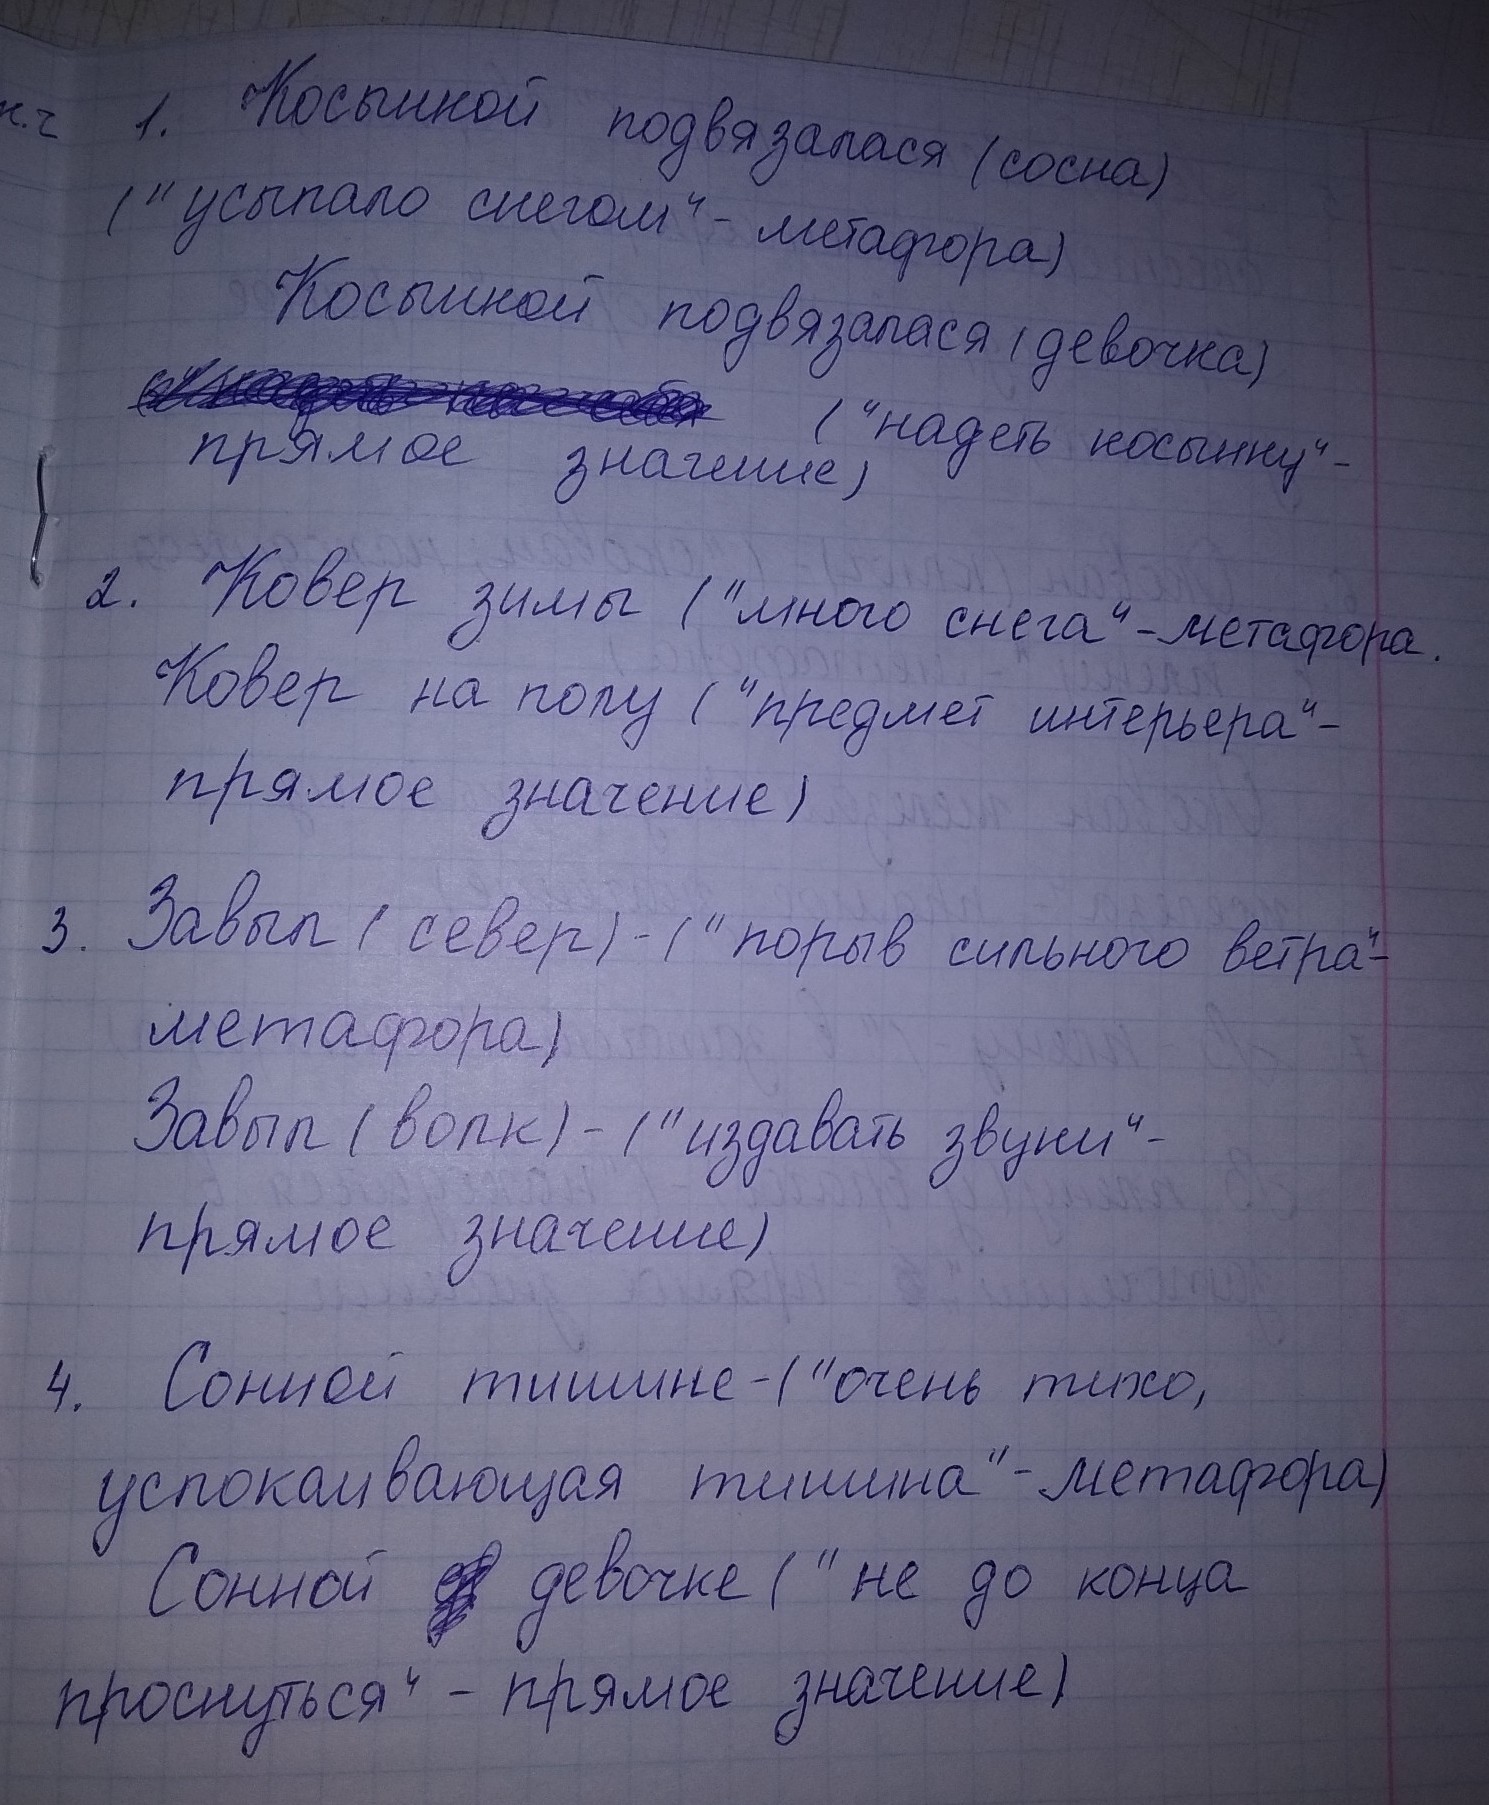 1. Косынкой подвязалася (сосна)
("усыпало снегом" - метафора)
Косынкой подвязалася (девочка)
("надеть косынку" -
прямое значение)
2. Ковер зимы ("много снега" - метафора.
Ковер на полу ("предмет интерьера" -
прямое значение)
3. Завыл (север) - ("порыв сильного ветра" -
метафора)
Завыл (волк) - ("издавать звуки" -
прямое значение)
4. Сонной тишине - ("очень тихо,
успокаивающая тишина" - метафора)
Сонной девочке ("не до конца
проснуться" - прямое значение)